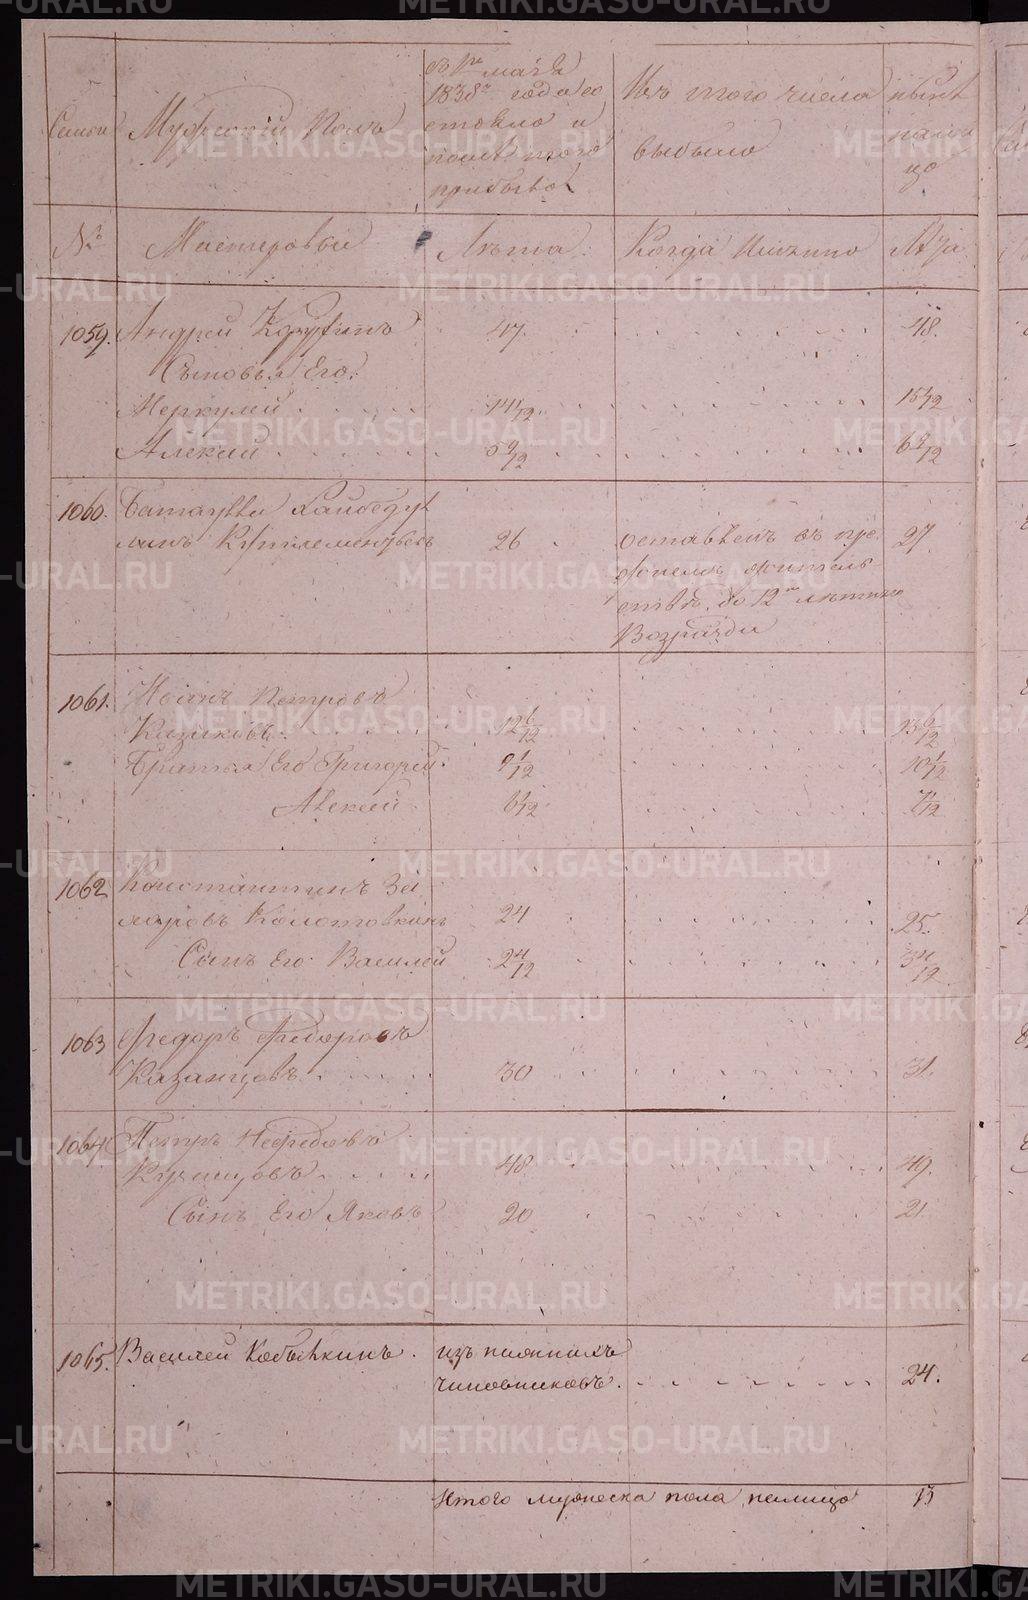 Семьи
Мужескiй Полъ
въ 1е мая
1838го года со
стояло и
после того
прибыло
Изъ того числа
выбыло
ныне
налицо
№
Мастеровыи
Лѣта
Когда Имянно
Лѣта
1059. Андрей 47. 48.
Сыновья Его.
Меркулей 14 1/12 15 1/12
Алексей 5 9/12 6 9/12
1060.
26 оставленъ въ пре 27.
до 12ти лѣтняго
Возраста
1061. Иванъ Петровъ
Казаковъ 12 6/12 13 6/12
Братья Его Григорей 9 1/12 10 1/12
Алексей 6 1/12 7 1/12
1062 Константинъ За
харовъ Колотовкинъ 24 25.
Сынъ Его Василей 2 4/12 3 4/12
1063 Федоръ Федоровъ
Казанцовъ 30 31.
1064 Петръ Нефедовъ
Кузнецовъ 48 49.
Сынъ Его Яковъ 20 21.
1065. Василей Кобылкинъ. изъ
чиновниковъ. 24.
Итого мужеска пола налицо 13
METRIKI.GASO-URAL.RU